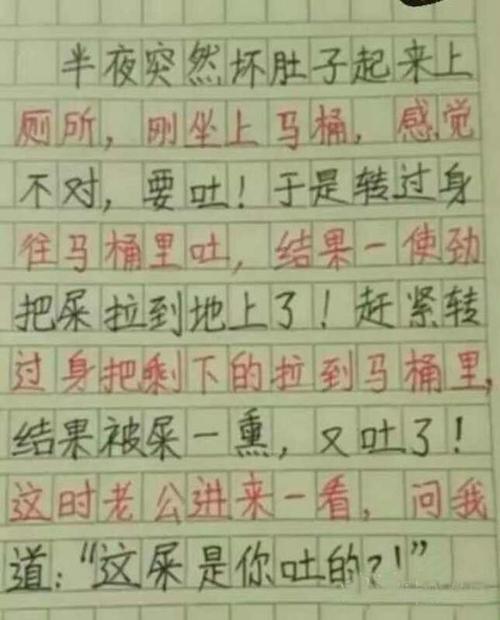 半夜突然坏肚子起来上
厕所，刚坐上马桶，感觉
不对，要吐！于是转过身
往马桶里吐，结果一使劲
把屎拉到地上了！赶紧转
过身把剩下的拉到马桶里，
结果被屎一熏，又吐了！
这时老公进来一看，问我
道：“这屎是你吐的？！”